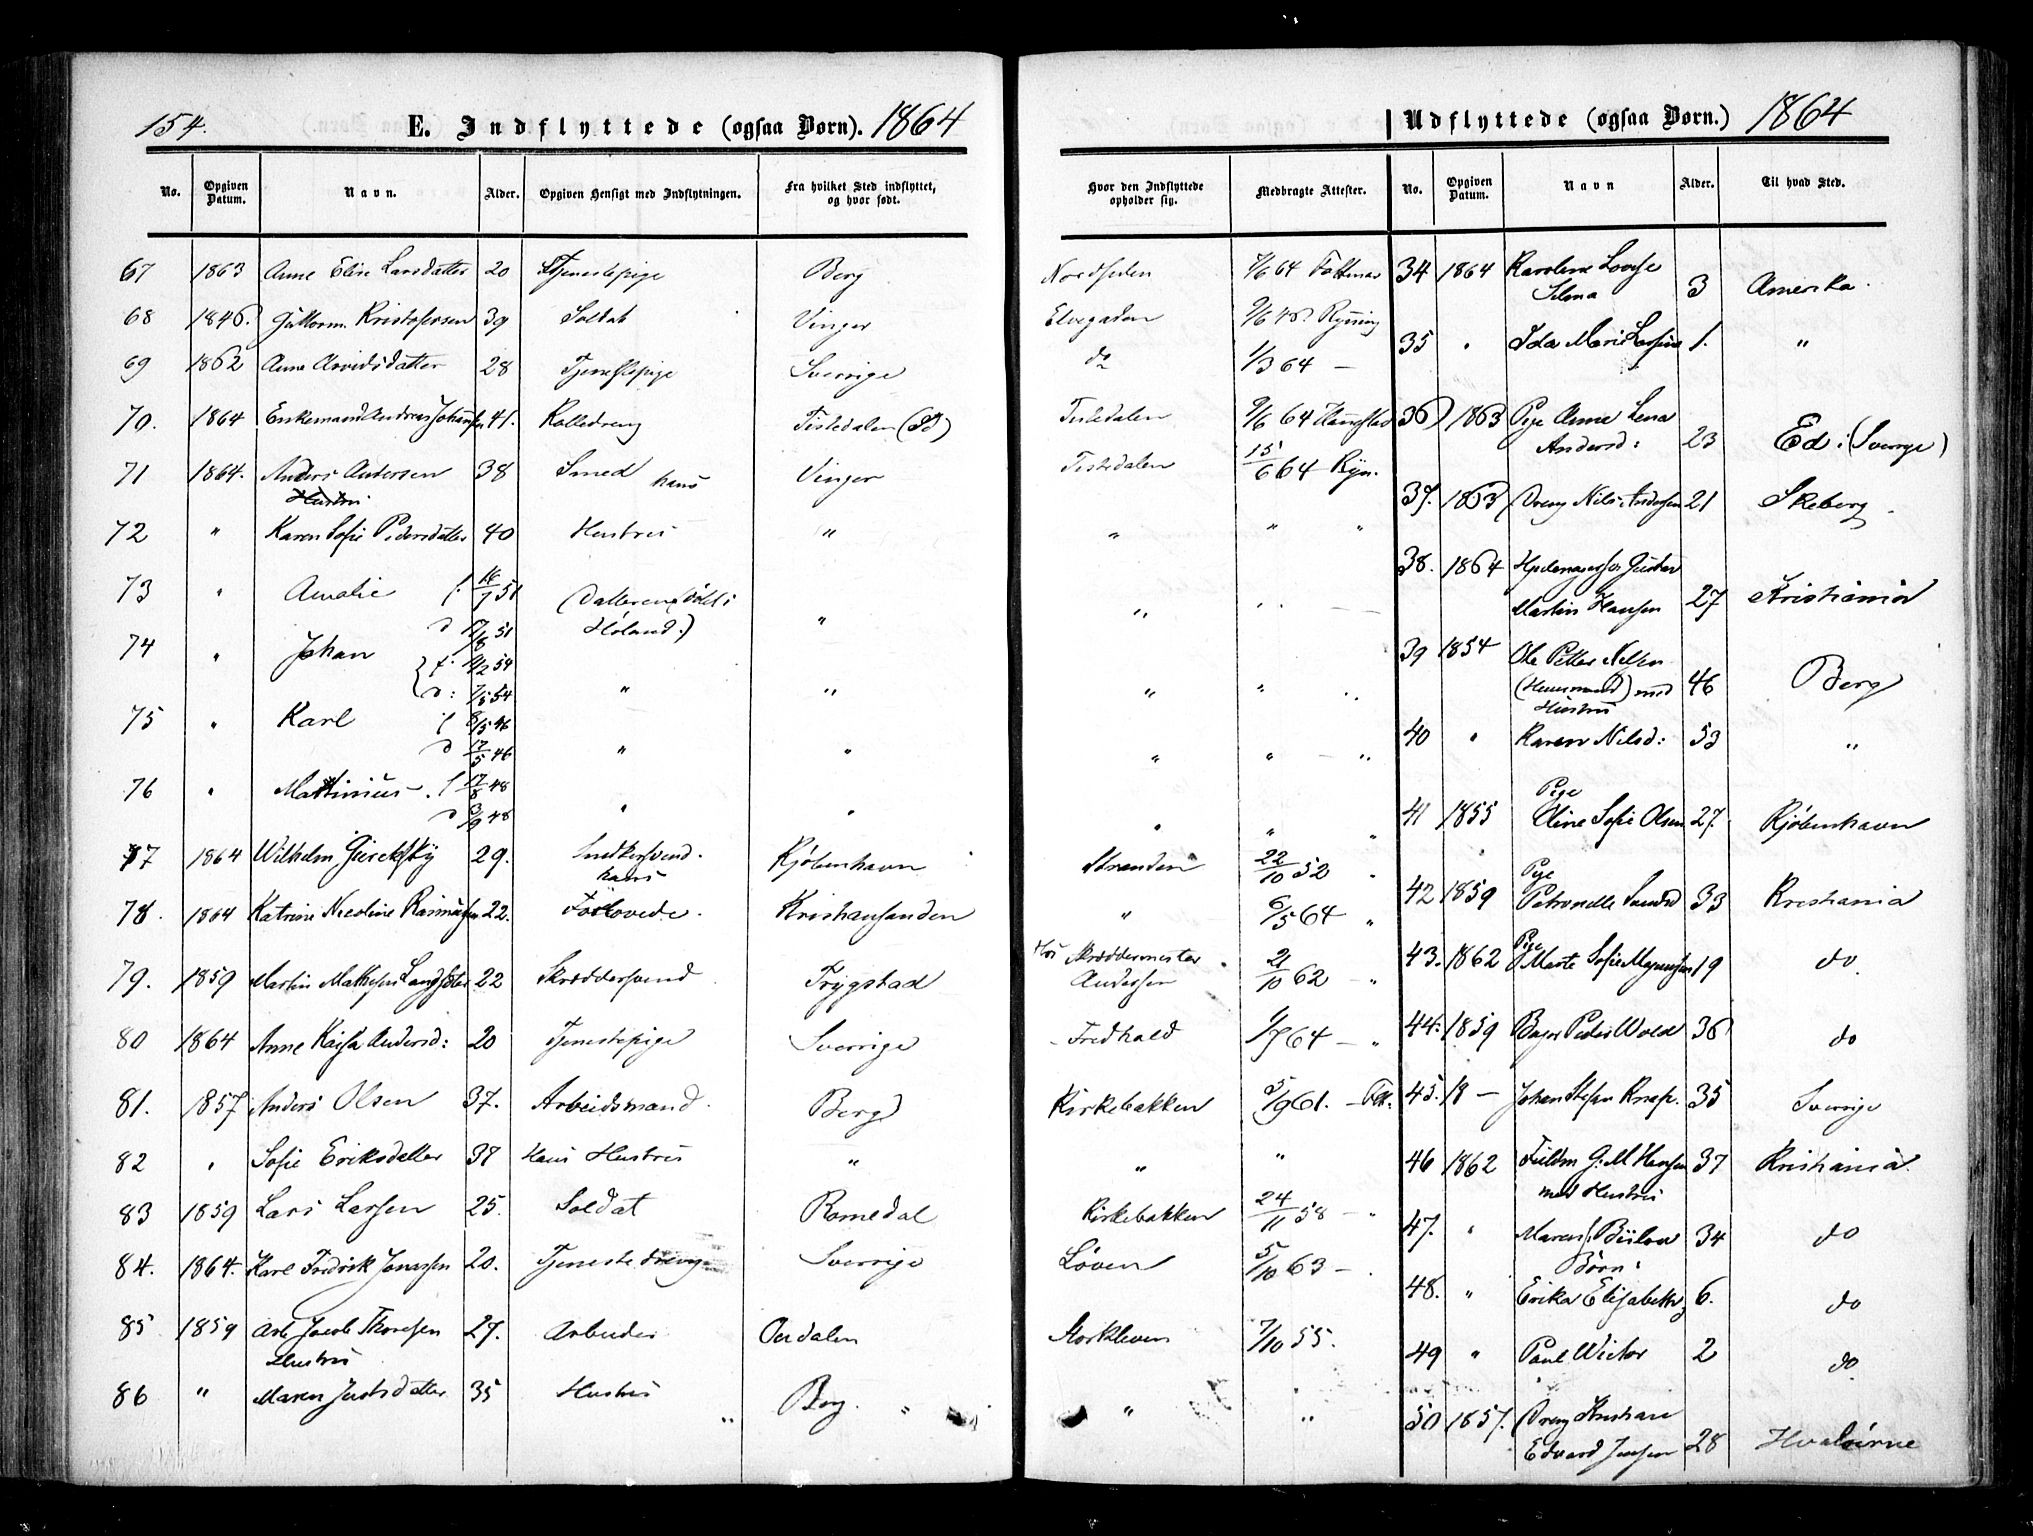 154.
E. Indflyttede (ogsaa Børn). 1864
No. Opgiven Datum. Navn. Alder. Opgiven Hensigt med Indflytningen. Fra hvilket Sted indflyttet, og hvor født.
67 1863 Anne Elise Larsdatter 20 Tjenestepige Berg
68 1846. Guttorm Kristofersen 39 Soldat Vinger
69 1862 Anne Arvidsdatter 28 Tjenestepige Sverrige
70. 1864 Enkemand Andreas Johansen 41. Tistedalen
71 1864. Anders Andersen 38 Smed Vinger
Hustru hans
72 " Karen Sofie Pedersdatter 40 Hustru "
73 " Amalie f. 16/7 51 (Datteren døbt i "
74 " Johan d 17/8 51 Høland.)
{ f. 19/2 54
d: 7/5 54 " "
75 " Karl f 8/5 46
d 17/5 46 " "
76 " Martinius. f 17/8 48
d 3/9 48 " "
77 1864 Wilhelm 29. Snedkersvend. Kjøbenhavn
hans
78. 1864 Katrine Nicoline Rasmussen 22. Forlovede. Kristiansanden
79. 1859 Martin Mathisen 22 Skræddersvend Trygstad
80 1864 Anne Kajsa Andersd: 20 Tjenestepige Sverrige
81. 1857 Anders Olsen 37. Arbeidsmand. Berg
82 " Sofie Eriksdatter 38 Hans Hustru "
83 1859 Lars Larsen 25. Soldat Romedal
84. 1864. Karl Fredrik Jonassen 20. Tjenestedreng Sverrige
85 1859 Jacob Thoresen 27. Arbeider Ourdalen
Hustru
86 " Maren Justsdatter 35 Hustru " Berg. "
Udflyttede (ogsaa Børn.) 1864
Hvor den Indflyttede opholder sig. Medbragte Attester. No. Opgiven Datum. Navn Alder. Til hvad Sted.
Nordsiden 7/6 64 34 1864 Karoline Lovise
Selma 3 Amerika.
Elvegaden 9/6 48. Rynning
do 1/3 64 — 35 " Ida Marie 1. "
Tistedalen 9/6 64 36 1863 Pige Anne Lena
Andersd: 23 Ed i (Sverrige)
Tistedalen 15/6 64 Ryn.
37. 1863 Dreng Nils Andersen 21 Skeberg
" " "
38. 1864 Gustav
Martin Hansen 27 Kristiania
" " "
39 1854 Ole Petter Nilsen
(Huusmand) med 46 Berg
Hustru
" " "
40 " Karen Nilsd: 53 "
" " — "
41 1855 Pige
Oline Sofie Olsen 27. Kjøbenhavn
" " "
Stranden 22/10 52 "
42 1859 Pige
Petronelle 33 Kristiania
" 6/5 64 "
Hos Skræddermester
Andersen 2/10 62 — " 43. 1862 Pige
Marte Sofie 19 do
Fredhald 1/7 64 — " 44. 1859 Bager Peder Wold 36 do
Kirkebakken 5/9 61. — 45. 18 — Johan Stefan Knap. 35 Sverrige
" " 46 1862 G. M Hansen 37 Kristiania
med Hustru
Kirkebakken 24/11 58 — " 47. " Maren f. Bülow 34 do
Børn:
Løven 5/10 63 — . 48. " Erika Elisabeth 6. do
7/10 55. 49 " Paul Victor 2 do
" " 50 1857. Dreng Kristian
Edvard Jensen 28 Hvaløerne